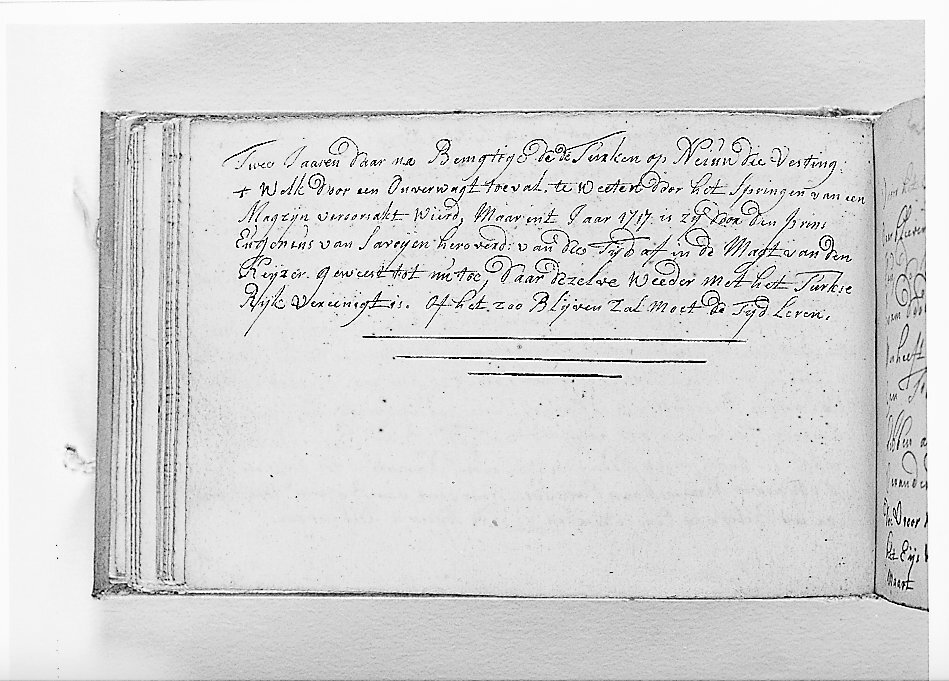 Twee Jaaren daar na Bemagtigde de Turken op Nieuw die Vesting:
+ Welk door een Onverwagt toeval. te weeten door het Springen van een
Magzyn veroorsakt wierd, Maar int Jaar 1717. is zy door den prins
Eugenius van Savoyen heroverd: van dien Tijd af in de Magt van den
Keyzer. geweest tot nu toe, daar dezelve Weeder met het Turkse
Rijk Vereenigt is. Of het zoo Blijven Zal moet de Tijd Leren.
van
heeft
van de
Door
het Eijs
Maart